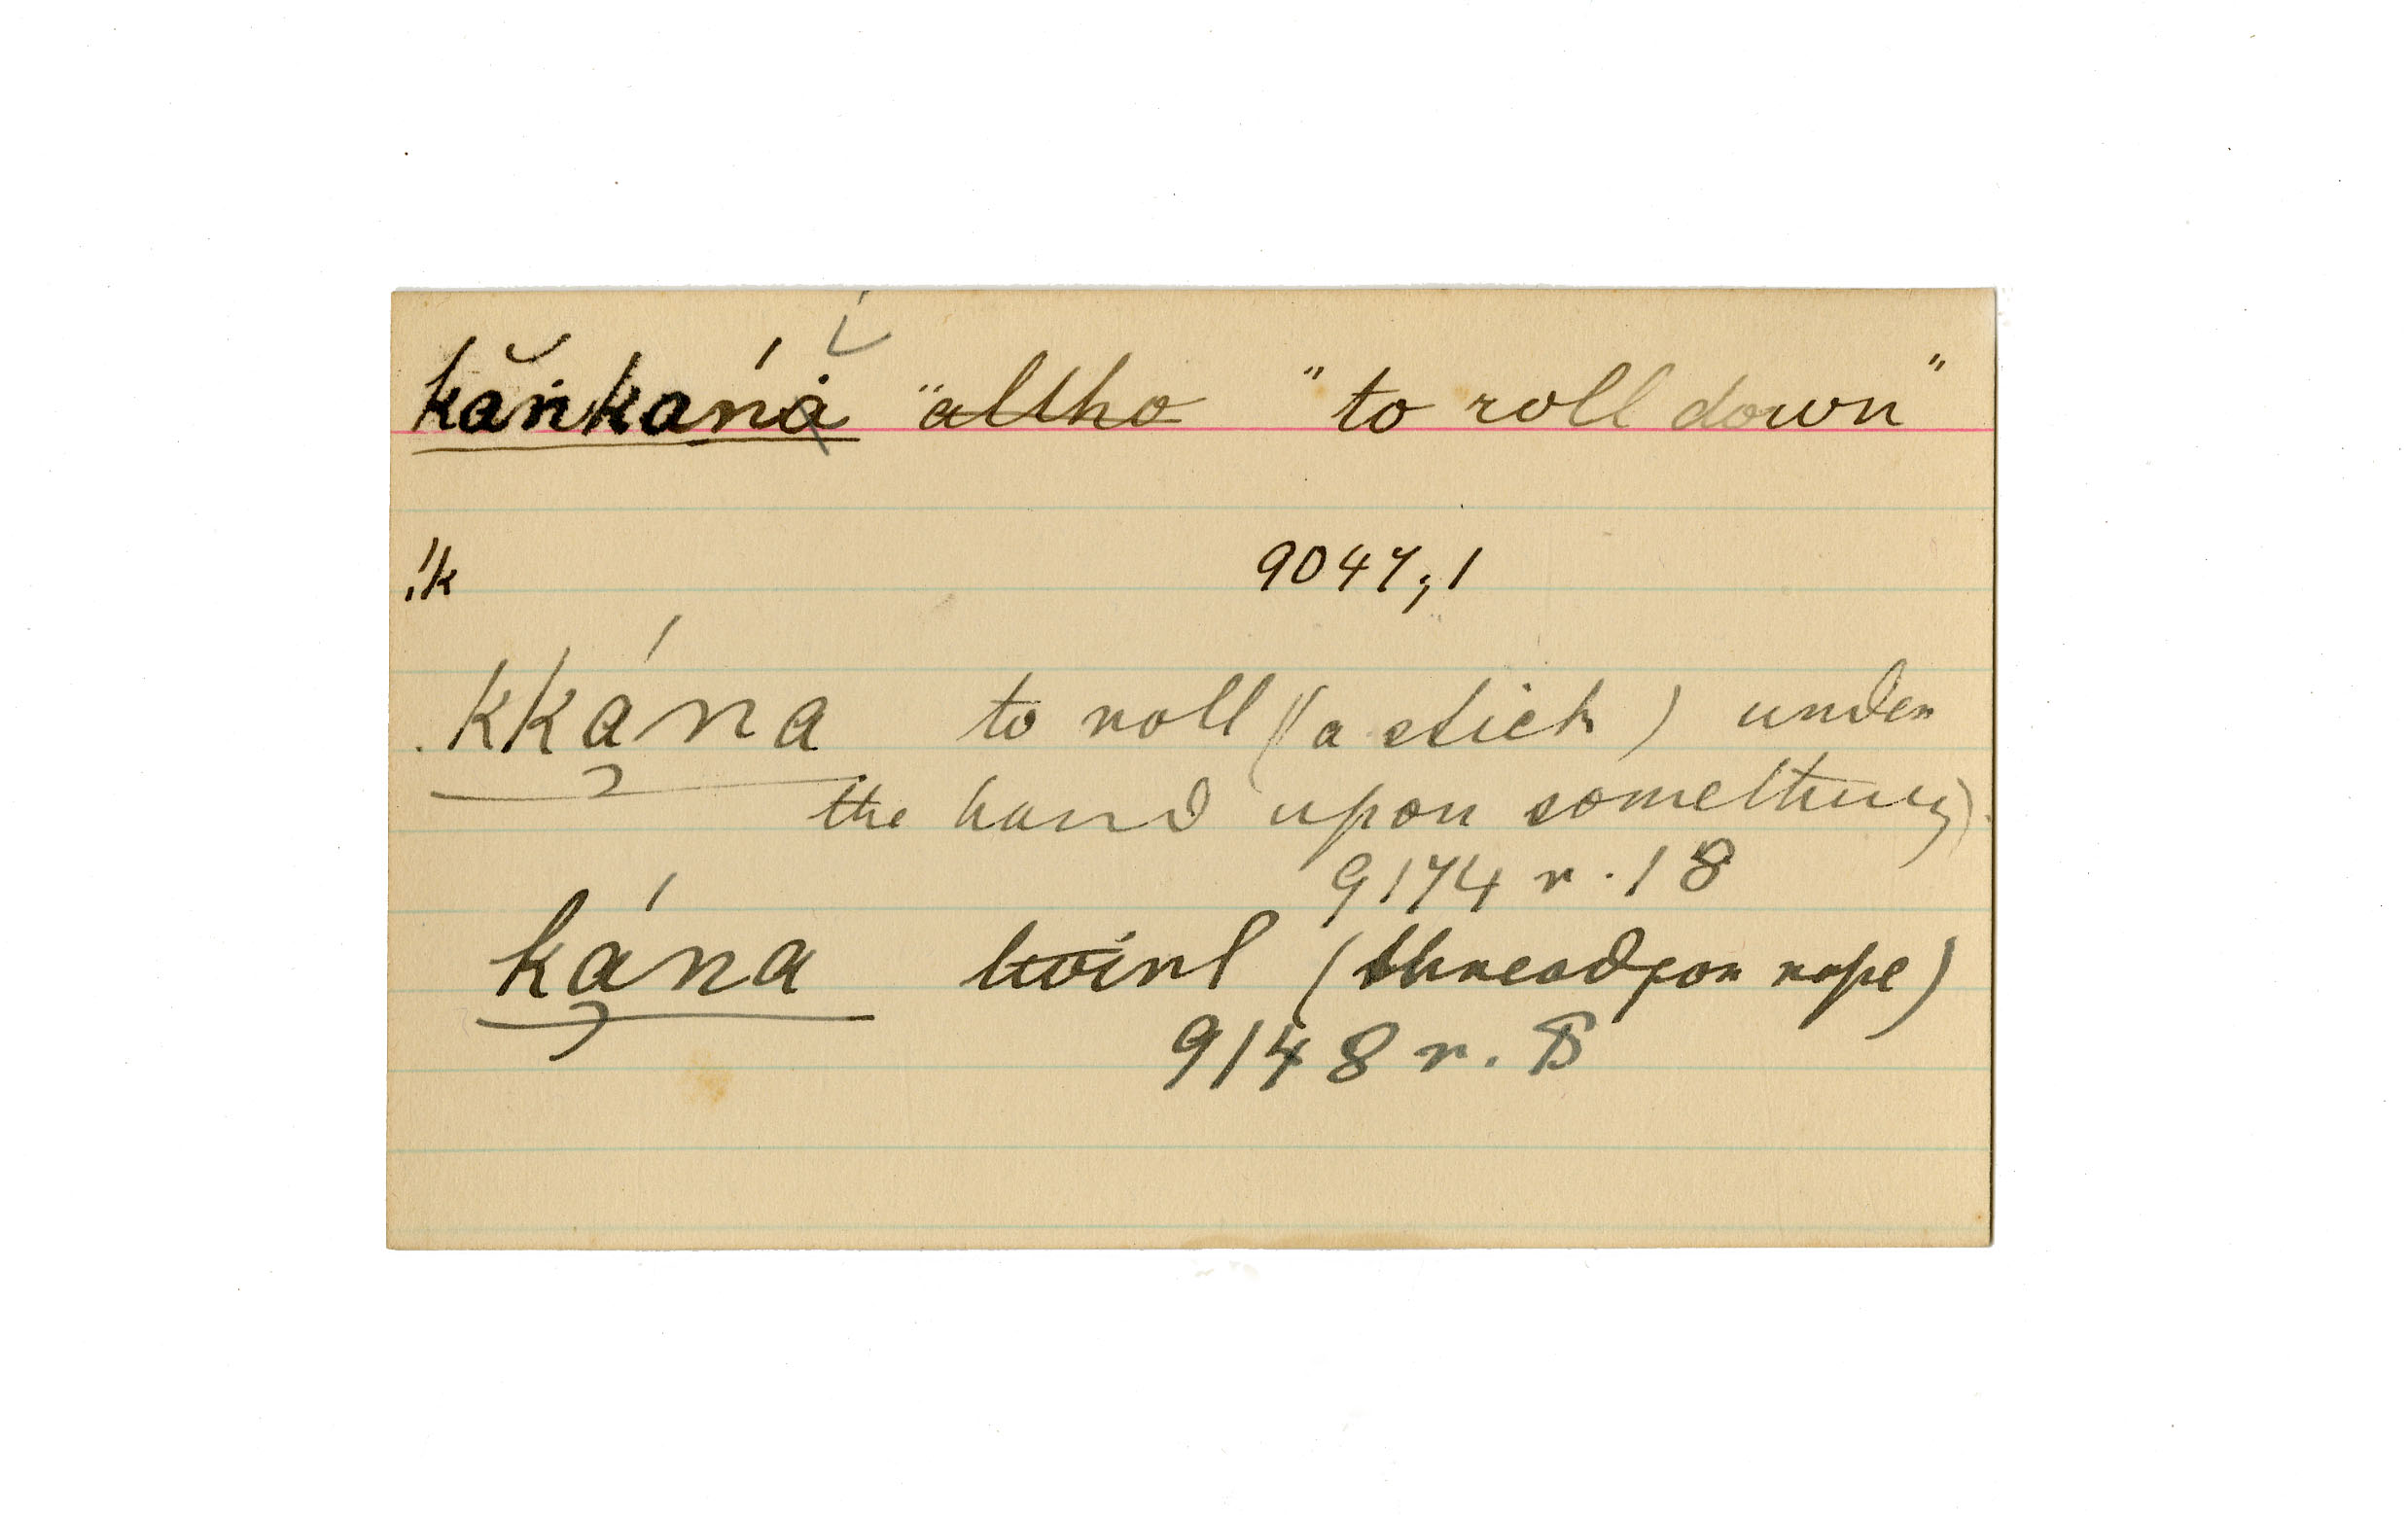 kăṅkáná "altho "to roll down"
!k 9047,1
kkána to roll (a stick) under
the hand upon something).
9174 r. 18
kána twirl (thread, or rope)
9148 r.